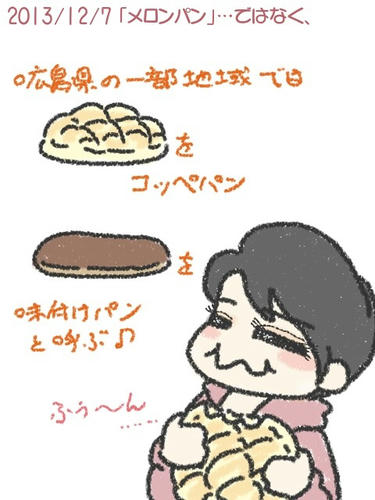 2013/12/7「メロンパン」…ではなく、
広島県の一部地域では
を
コッペパン
を
味付けパン
と呼ぶ♪
ふぅ〜ん
……